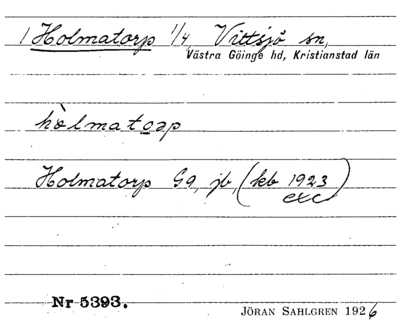 1 Holmatorp 1/4, Vittsjö sn,
Västra Göinge hd, Kristianstad län
hòlmatoɹp
Holmatorp Gg, jb, (kb 1923)
exc
Nr 5393.
JÖRAN SAHLGREN 1926